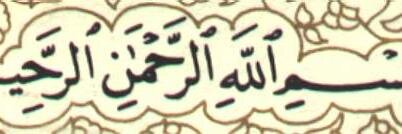 ـسْمِ ٱللَّهِ ٱلرَّحْمَٰنِ ٱلرَّحِيـ